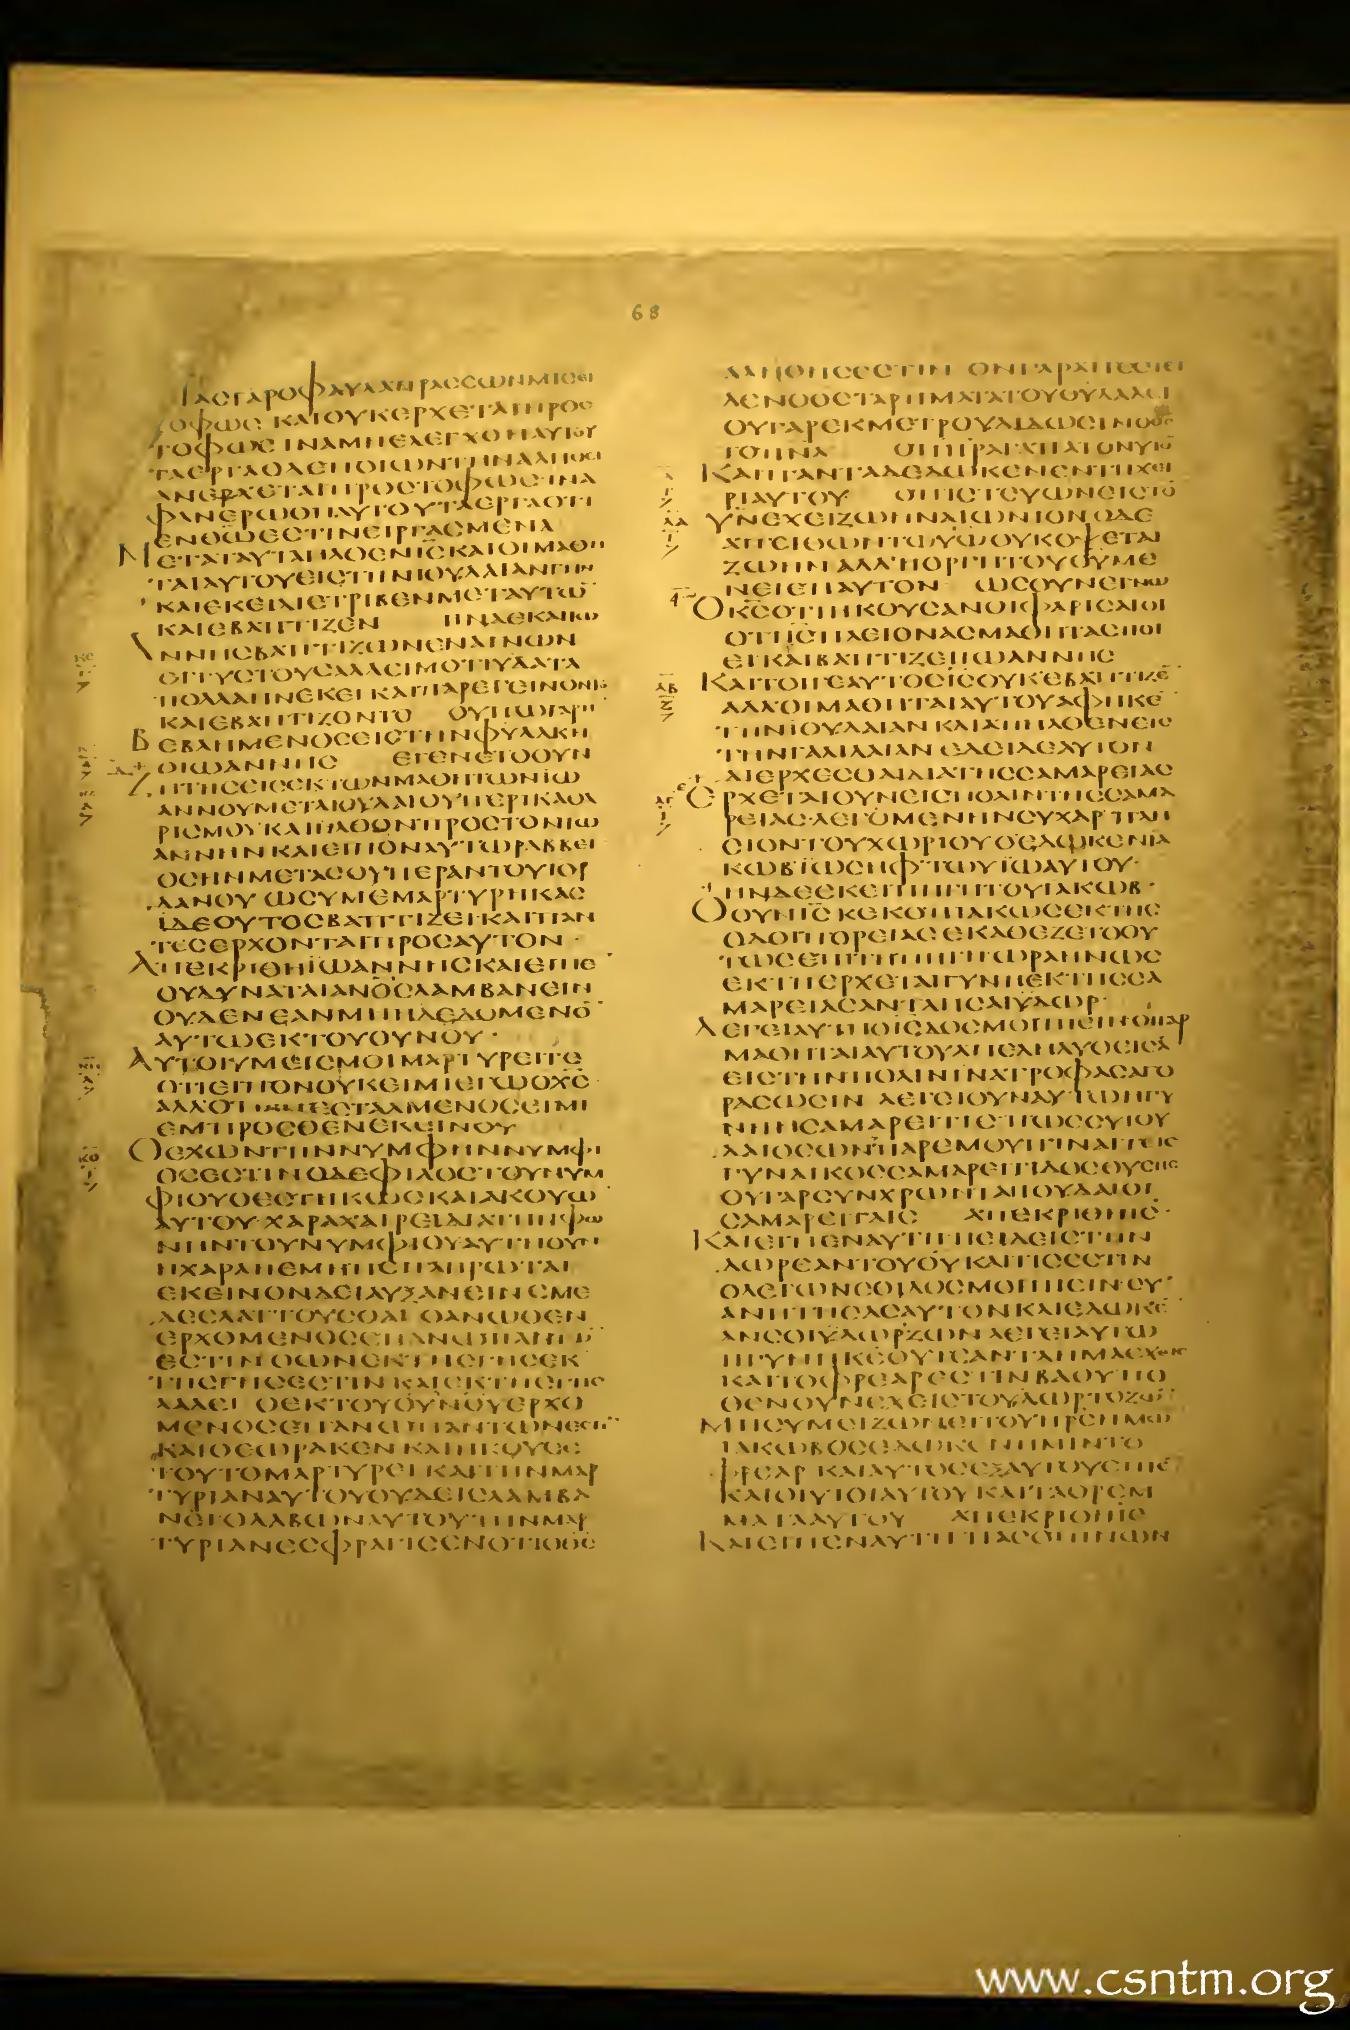 ΠΑϹΓΑΡΟΦΑΥΛΑΠΡΑϹϹΩΝΜΙϹΕΙ
ΤΟΦΩϹ ΚΑΙΟΥΚΕΡΧΕΤΑΙΠΡΟϹ
ΤΟΦΩϹ ΙΝΑΜΗΕΛΕΓΧΘΗΑΥΤΟΥ
ΤΑΕΡΓΑΟΔΕΠΟΙΩΝΤΗΝΑΛΗΘΕΙ
ΑΝΕΡΧΕΤΑΙΠΡΟϹΤΟΦΩϹ ΙΝΑ
ΦΑΝΕΡΩΘΗΑΥΤΟΥΤΑΕΡΓΑΟΤΙ
ΕΝΘ̅Ω̅ΕϹΤΙΝΕΙΡΓΑϹΜΕΝΑ
ΜΕΤΑΤΑΥΤΑΗΛΘΕΝΙ̅Ϲ̅ΚΑΙΟΙΜΑΘΗ
ΤΑΙΑΥΤΟΥΕΙϹΤΗΝΙΟΥΔΑΙΑΝΓΗΝ
ΚΑΙΕΚΕΙΔΙΕΤΡΙΒΕΝΜΕΤΑΥΤΩ̅
ΚΑΙΕΒΑΠΤΙΖΕΝ ΗΝΔΕΚΑΙΙΩ
ΑΝΝΗϹΒΑΠΤΙΖΩΝΕΝΑΙΝΩΝ
ΕΓΓΥϹΤΟΥϹΑΛΛΕΙΜΟΤΙΥΔΑΤΑ
ΠΟΛΛΑΗΝΕΚΕΙΚΑΙΠΑΡΕΓΕΙΝΟΝΤΟ
ΚΑΙΕΒΑΠΤΙΖΟΝΤΟ ΟΥΠΩΓΑΡΗ̅
ΒΕΒΛΗΜΕΝΟϹΕΙϹΤΗΝΦΥΛΑΚΗ
ΟΙΩΑΝΝΗϹ ΕΓΕΝΕΤΟΟΥΝ
ΖΗΤΗϹΕΙϹΕΚΤΩΝΜΑΘΗΤΩΝΙΩ
ΑΝΝΟΥΜΕΤΑΙΟΥΔΑΙΟΥΠΕΡΙΚΑΘΑ
ΡΙϹΜΟΥΚΑΙΗΛΘΟΝΠΡΟϹΤΟΝΙΩ
ΑΝΝΗΝΚΑΙΕΙΠΟΝΑΥΤΩΡΑΒΒΕΙ
ΟϹΗΝΜΕΤΑϹΟΥΠΕΡΑΝΤΟΥΙΟΡ
ΔΑΝΟΥ ΩϹΥΜΕΜΑΡΤΥΡΗΚΑϹ
ΙΔΕΟΥΤΟϹΒΑΠΤΙΖΕΙΚΑΙΠΑΝ
ΤΕϹΕΡΧΟΝΤΑΙΠΡΟϹΑΥΤΟΝ·
ΑΠΕΚΡΙΘΗΪΩΑΝΝΗϹΚΑΙΕΙΠΕ
ΟΥΔΥΝΑΤΑΙΑΝ̅Ο̅Ϲ̅ΛΑΜΒΑΝΕΙΝ
ΟΥΔΕΝΕΑΝΜΗΗΔΕΔΟΜΕΝΟ̅
ΑΥΤΩΕΚΤΟΥΟΥΝΟΥ·
ΑΥΤΟΙΥΜΕΙϹΜΟΙΜΑΡΤΥΡΕΙΤΕ
ΟΤΙΕΙΠΟΝΟΥΚΕΙΜΙΕΓΩΟΧ̅Ϲ̅
ΑΛΛΟΤΙΑΠΕϹΤΑΛΜΕΝΟϹΕΙΜΙ
ΕΜΠΡΟϹΘΕΝΕΚΕΙΝΟΥ
ΟΕΧΩΝΤΗΝΝΥΜΦΗΝΝΥΜΦΙ
ΟϹΕϹΤΙΝΟΔΕΦΙΛΟϹΤΟΥΝΥΜ
ΦΙΟΥΟΕϹΤΗΚΩϹΚΑΙΑΚΟΥΩ
ΑΥΤΟΥ·ΧΑΡΑΧΑΙΡΕΙΔΙΑΤΗΝΦΩ
ΝΗΝΤΟΥΝΥΜΦΙΟΥΑΥΤΗΟΥΝ
ΗΧΑΡΑΗΕΜΗΠΕΠΛΗΡΩΤΑΙ
ΕΚΕΙΝΟΝΔΕΙΑΥΞΑΝΕΙΝΕΜΕ
ΔΕΕΛΑΤΤΟΥϹΘΑΙ ΟΑΝΩΘΕΝ
ΕΡΧΟΜΕΝΟϹΕΠΑΝΩΠΑΝΤΩ̅
ΕϹΤΙΝΟΩΝΕΚΤΗϹΓΗϹΕΚ
ΤΗϹΓΗϹΕϹΤΙΝΚΑΙΕΚΤΗϹΓΗϹ
ΛΑΛΕΙ ΟΕΚΤΟΥΟΥΝΟΥΕΡΧΟ
ΜΕΝΟϹΕΠΑΝΩΠΑΝΤΩΝΕϹΤΙ̅
ΚΑΙΟΕΩΡΑΚΕΝΚΑΙΗΚΟΥϹΕ
ΤΟΥΤΟΜΑΡΤΥΡΕΙΚΑΙΤΗΝΜΑΡ
ΤΥΡΙΑΝΑΥΤΟΥΟΥΔΕΙϹΛΑΜΒΑ
ΝΕΙΟΛΑΒΩΝΑΥΤΟΥΤΗΝΜΑΡ
ΤΥΡΙΑΝΕϹΦΡΑΓΙϹΕΝΟΤΙΟΘ̅Ϲ̅
68
ΑΛΗΘΗϹΕϹΤΙΝ ΟΝΓΑΡΑΠΕϹΤΕΙ
ΛΕΝΟΘ̅Ϲ̅ΤΑΡΗΜΑΤΑΤΟΥΘ̅Υ̅ΛΑΛΕΙ
ΟΥΓΑΡΕΚΜΕΤΡΟΥΔΙΔΩϹΙΝΟΘ̅Ϲ̅
ΤΟΠ̅Ν̅Α̅ ΟΠ̅Η̅Ρ̅ΑΓΑΠΑΤΟΝΥ̅Ν̅
ΚΑΙΠΑΝΤΑΔΕΔΩΚΕΝΕΝΤΗΧΕΙ
ΡΙΑΥΤΟΥ ΟΠΙϹΤΕΥΩΝΕΙϹΤΟ̅
Υ̅Ν̅ΕΧΕΙΖΩΗΝΑΙΩΝΙΟΝΟΔΕ
ΑΠΕΙΘΩΝΤΩΥ̅Ω̅ΟΥΚΟΨΕΤΑΙ
ΖΩΗΝΑΛΛΗΟΡΓΗΤΟΥΘ̅Υ̅ΜΕ
ΝΕΙΕΠΑΥΤΟΝ ΩϹΟΥΝΕΓΝΩ
ΟΚ̅Ϲ̅ΟΤΙΗΚΟΥϹΑΝΟΙΦΑΡΙϹΑΙΟΙ
ΟΤΙΙ̅Ϲ̅ΠΛΕΙΟΝΑϹΜΑΘΗΤΑϹΠΟΙ
ΕΙΚΑΙΒΑΠΤΙΖΕΙΗΙΩΑΝΝΗϹ
ΚΑΙΤΟΙΓΕΑΥΤΟϹΙ̅Ϲ̅ΟΥΚΕΒΑΠΤΙΖΕ̅
ΑΛΛΟΙΜΑΘΗΤΑΙΑΥΤΟΥΑΦΗΚΕ̅
ΤΗΝΙΟΥΔΑΙΑΝΚΑΙΑΠΗΛΘΕΝΕΙϹ
ΤΗΝΓΑΛΙΛΑΙΑΝΕΔΕΙΔΕΑΥΤΟΝ
ΔΙΕΡΧΕϹΘΑΙΔΙΑΤΗϹϹΑΜΑΡΕΙΑϹ
ΕΡΧΕΤΑΙΟΥΝΕΙϹΠΟΛΙΝΤΗϹϹΑΜΑ
ΡΕΙΑϹΛΕΓΟΜΕΝΗΝϹΥΧΑΡΠΛΗ
ϹΙΟΝΤΟΥΧΩΡΙΟΥΟΕΔΩΚΕΝΙΑ
ΚΩΒΪΩϹΗΦΤΩΥ̅Ϊ̅Ω̅ΑΥΤΟΥ·
ΗΝΔΕΕΚΕΙΠΗΓΗΤΟΥΙΑΚΩΒ·
ΟΟΥΝΙ̅Ϲ̅ΚΕΚΟΠΙΑΚΩϹΕΚΤΗϹ
ΟΔΟΙΠΟΡΕΙΑϹΕΚΑΘΕΖΕΤΟΟΥ
ΤΩϹΕΠΙΤΗΠΗΓΗΩΡΑΗΝΩϹ
ΕΚΤΗΕΡΧΕΤΑΙΓΥΝΗΕΚΤΗϹϹΑ
ΜΑΡΕΙΑϹΑΝΤΛΗϹΑΙΫΔΩΡ
ΛΕΓΕΙΑΥΤΗΟΙ̅Ϲ̅ΔΟϹΜΟΙΠΙΕΙΝΟΙΓΑΡ
ΜΑΘΗΤΑΙΑΥΤΟΥΑΠΕΛΗΛΥΘΕΙϹΑ̅
ΕΙϹΤΗΝΠΟΛΙΝΙΝΑΤΡΟΦΑϹΑΓΟ
ΡΑϹΩϹΙΝ ΛΕΓΕΙΟΥΝΑΥΤΩΗΓΥ
ΝΗΗϹΑΜΑΡΕΙΤΙϹΠΩϹϹΥΙΟΥ
ΔΑΙΟϹΩΝΠΑΡΕΜΟΥΠΙΝΑΙΤΕΙϹ
ΓΥΝΑΙΚΟϹϹΑΜΑΡΕΙΤΙΔΟϹΟΥϹΗϹ
ΟΥΓΑΡϹΥΝΧΡΩΝΤΑΙΙΟΥΔΑΙΟΙ
ϹΑΜΑΡΕΙΤΑΙϹ ΑΠΕΚΡΙΘΗΙ̅Ϲ̅·
ΚΑΙΕΙΠΕΝΑΥΤΗΕΙΔΕΙϹΤΗΝ
ΔΩΡΕΑΝΤΟΥΘ̅Υ̅ΚΑΙΤΙϹΕϹΤΙΝ
ΟΛΕΓΩΝϹΟΙΔΟϹΜΟΙΠΙΕΙΝϹΥ
ΑΝΗΤΗϹΑϹΑΥΤΟΝΚΑΙΕΔΩΚΕ̅
ΑΝϹΟΙΫΔΩΡΖΩΝΛΕΓΕΙΑΥΤΩ
ΗΓΥΝΗΚ̅Ε̅ΟΥΤΕΑΝΤΛΗΜΑΕΧΕΙϹ
ΚΑΙΤΟΦΡΕΑΡΕϹΤΙΝΒΑΘΥΠΟ
ΘΕΝΟΥΝΕΧΕΙϹΤΟΥΔΩΡΤΟΖΩΝ
ΜΗϹΥΜΕΙΖΩΝΕΙΤΟΥΠ̅Ρ̅Ϲ̅ΗΜΩ
ΙΑΚΩΒΟϹΕΔΩΚΕΝΗΜΙΝΤΟ
ΦΡΕΑΡ ΚΑΙΑΥΤΟϹΕΞΑΥΤΟΥΕΠΙΕ̅
ΚΑΙΟΙΥΙΟΙΑΥΤΟΥΚΑΙΤΑΘΡΕΜ
ΜΑΤΑΑΥΤΟΥ ΑΠΕΚΡΙΘΗΙ̅Ϲ̅
ΚΑΙΕΙΠΕΝΑΥΤΗΠΑϹΟΠΙΝΩΝ
www.csntm.org